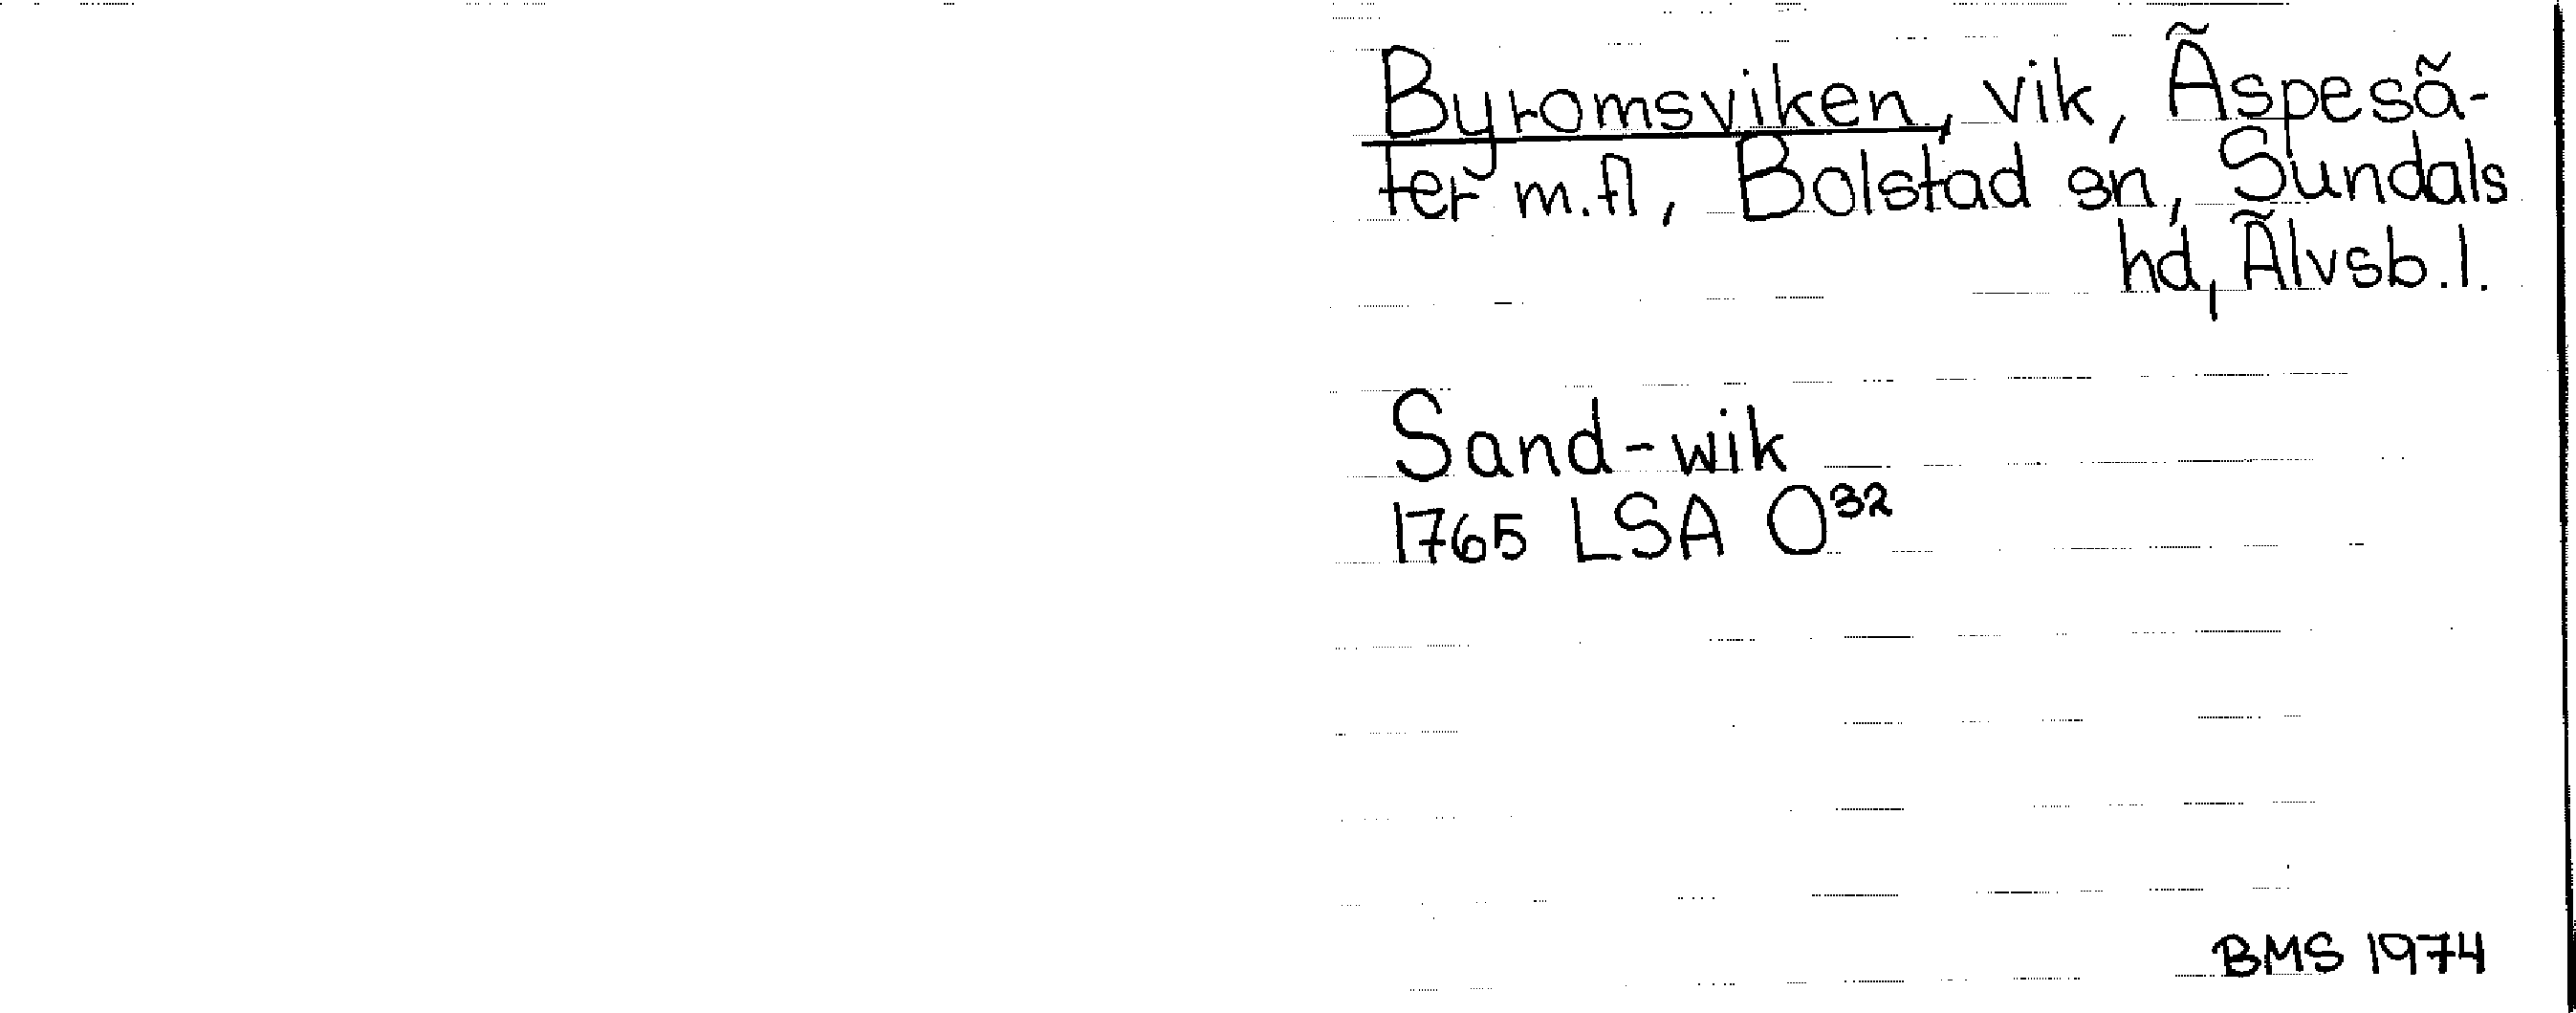 Byromsviken, vik, Ãspesã-
ter m.fl, Bolstad sn, Sundals
hd, Ãlvsb.l.
Sand-wik
1765 LSA O32
BMS 1974